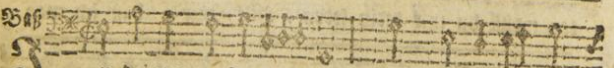 Baß